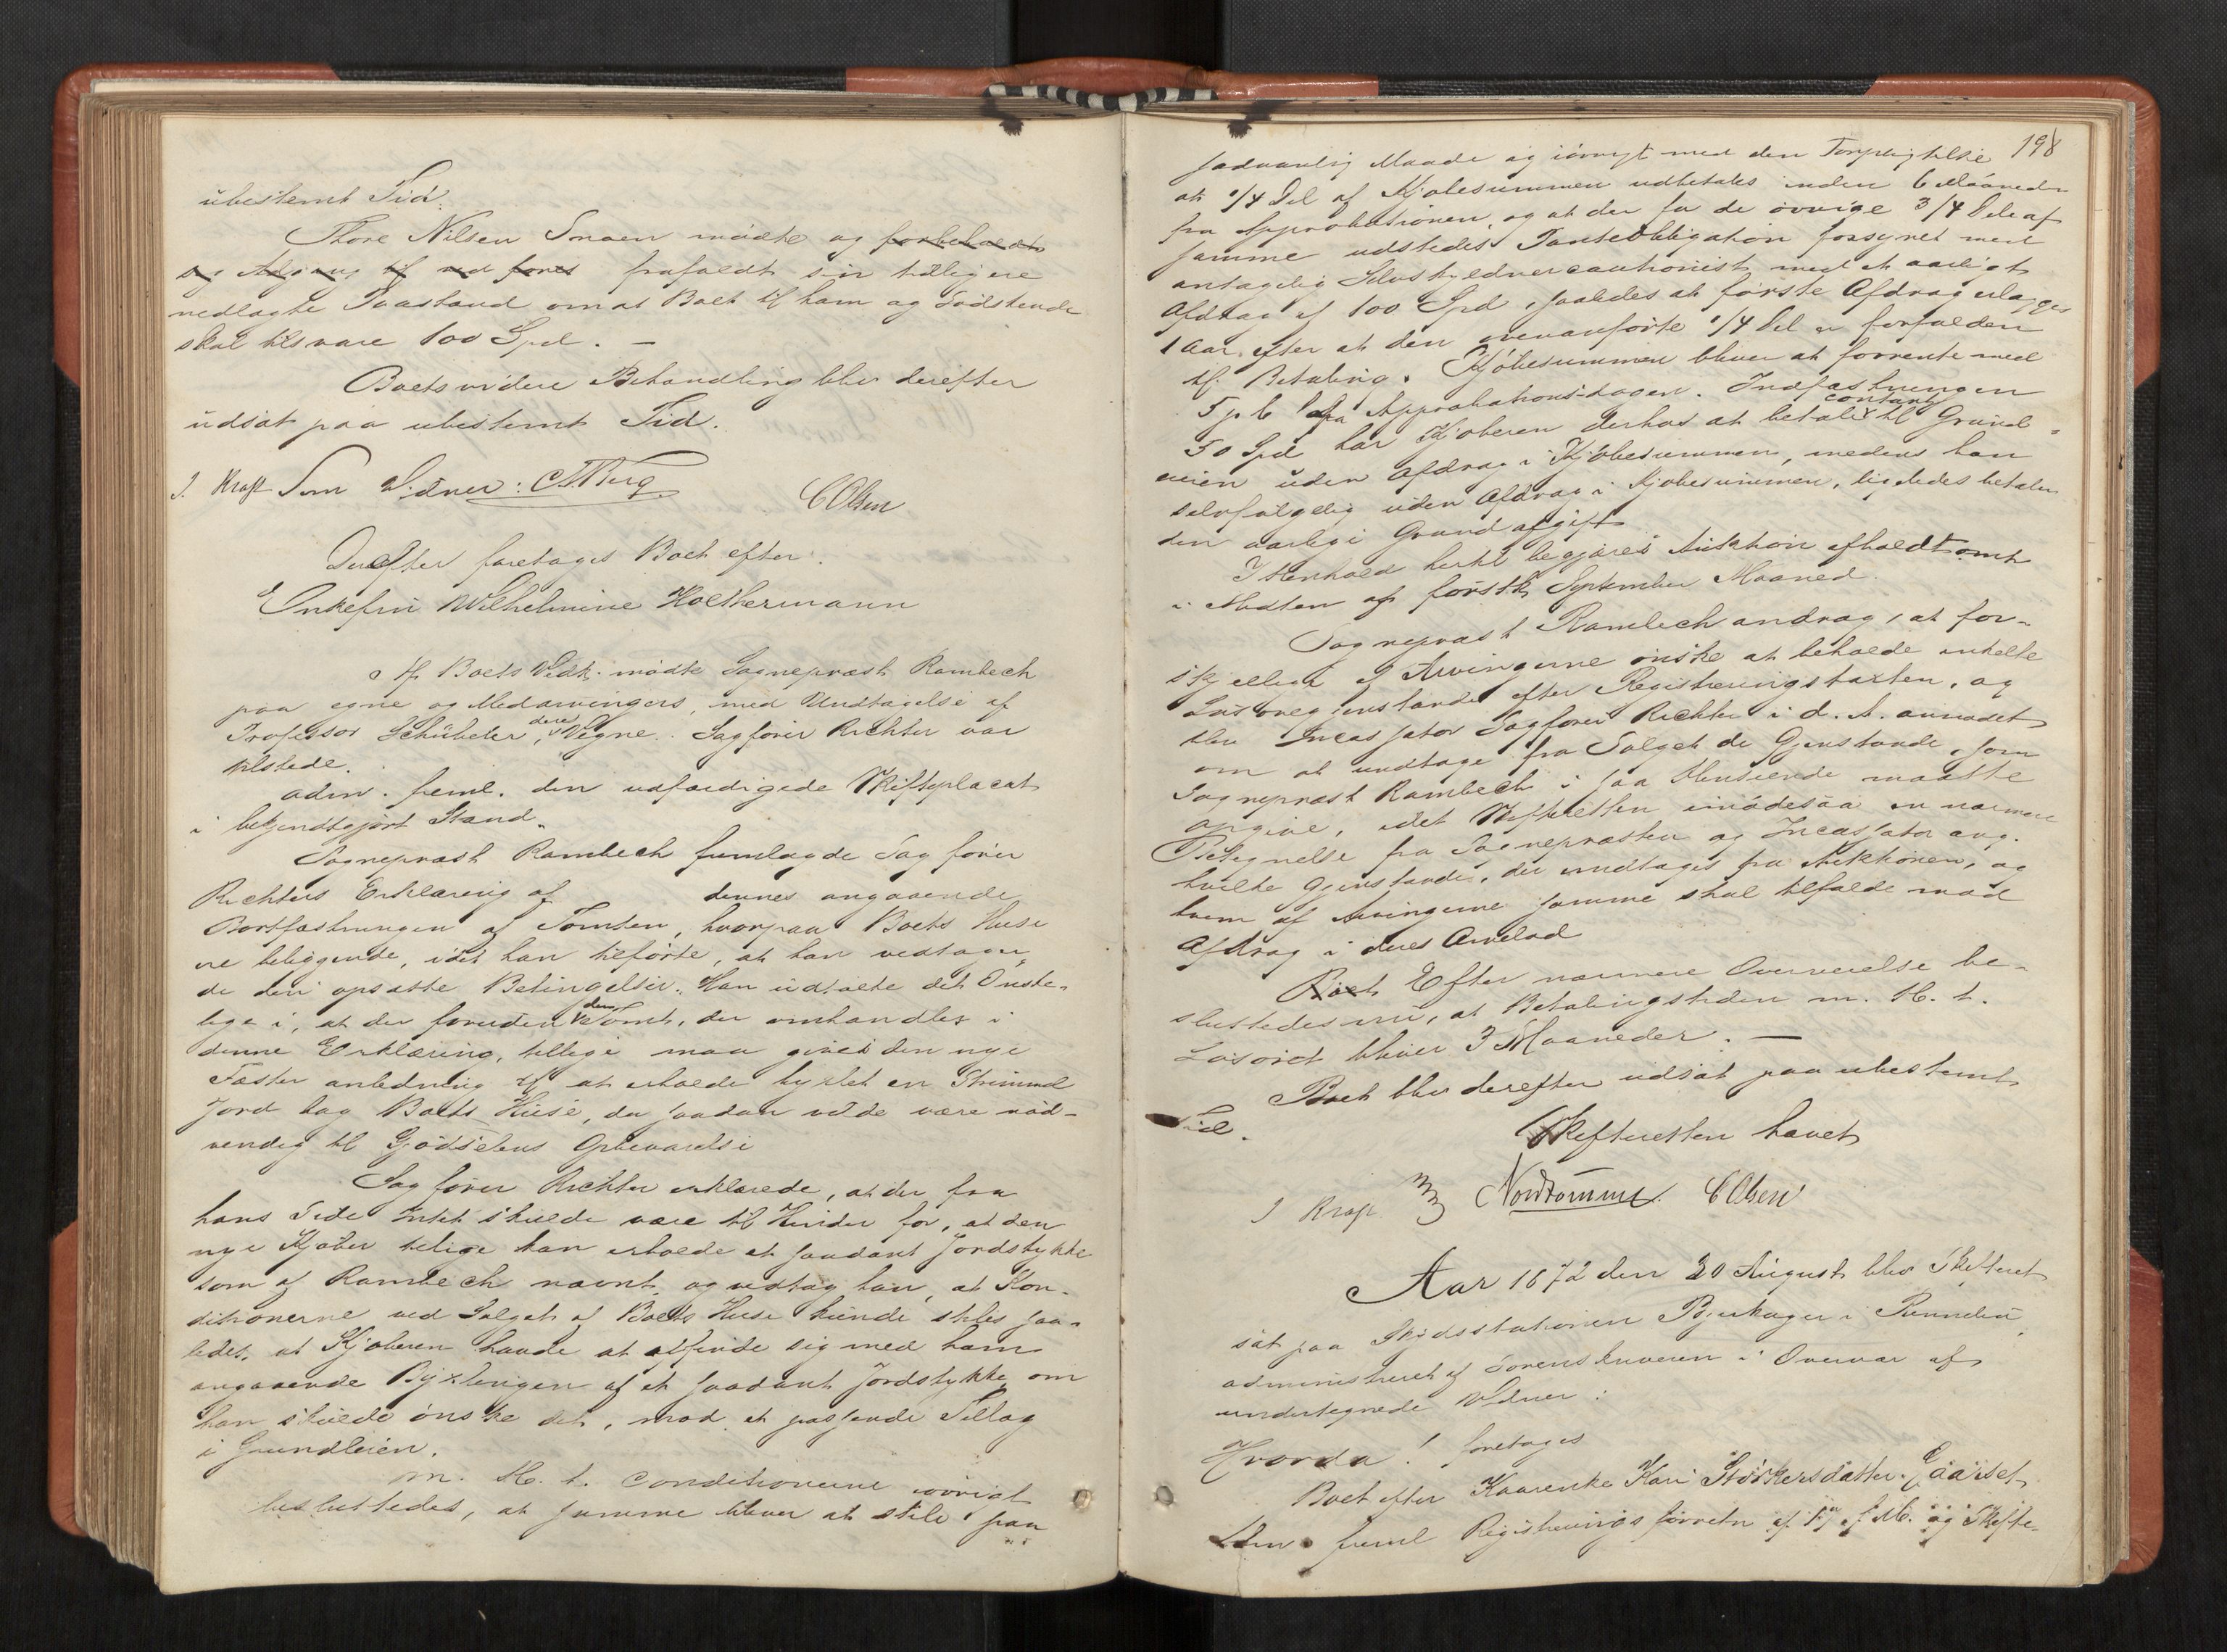 ubestemt Tid.
Thore Nilsen Smoen mødte og forbeholdt
sig Adgang til ved fores frafaldt sin tidligere
nedlagte Paastand om at Boet til ham og Sødskende
skal tilsvare 100 Spd. —
Boets videre Behandling blev derefter
udsat paa ubestemt Tid.
J. Krogh Som Vidner: COlsen
Derefter foretages Boet efter
Enkefru Wilhelmine Holthermann
Paa Boets Vedk. mødte Sognepræst Rambech
paa egne og Medarvingers, med Undtagelse af
Professor Schübeler, deres Vegne. Sagfører Richter var
tilstede.
Adm. freml. den udfærdigede Skifteplacat
i bekjendtgjort Stand.
Sognepræst Rambech fremlagde Sagfører
Richters Erklæring af dennes angaaende
Bortfæstningen af Tomten, hvorpaa Boets Huse
ere beliggende, idet han tilførte, at han vedtager
de deri opsatte Betingelser. Han udtalte det Ønske-
lige i, at der foruden den Tomt, der omhandles i
denne Erklæring, tillige maa gives den nye
Fæster anledning til at erholde byxlet en Strimmel
Jord bag Boets Huse, da saadan vilde være nød-
vendig til Gjødselens Opbevarelse
Sagfører Richter erklærede, at der fra
hans Side Intet skulde være til Hinder for, at den
nye Kjøber tillige kan erholde et saadant Jordstykke
som af Rambech nævnt, og vedtog han, at Kon-
ditionerne ved Salget af Boets Huse kunde stiles saa-
ledes, at Kjøberen havde at affinde sig med ham
angaaende Byxlingen af et saadant Jordstykke, om
han skulde ønske det, mod et passende Tillæg
i Grundleien.
M. H. t. Conditionerne iøvrigt
besluttedes, at samme bliver at stile paa
198
sædvanlig Maade og iøvrigt med den Forpligtelse
at 1/4 Del af Kjøbesummen udbetales inden 6 Maaneder
fra Approbationen, og at der for de øvrige 3/4 Dele af
samme udstedes Panteobligation forsynet med
antagelig Selvskyldnercautionist med et aarligt
Afdrag af 100 Spd, saaledes at første Afdrag erlægges
1 Aar efter at den ovenanførte 1/4 Del er forfalden
til Betaling. Kjøbesummen bliver at forrente med
5 pC fra Approbationsdagen. Indfæstningen
50 Spd har Kjøberen derhos at betale contant til Grund-
eieren uden Afdrag i Kjøbesummen, medens han
selvfølgelig uden Afdrag i Kjøbesummen, ligeledes betaler
den aarlige Grundafgift
I Henhold hertil begjæres Auktion afholdt omt.
i Midten af førstk September Maaned.
Sognepræst Rambech androg, at for-
skjellige af Arvingerne ønske at beholde enkelte
Løsøregjenstande efter Registreringstaxten, og
blev Incassator Sagfører Richter i d. A. anmodet
om at undtage fra Salget de Gjenstande, som
Sognepræst Rambech i saa Henseende maatte
opgive, idet Skifteretten imødesaa en nærmere
Betegnelse fra Sognepræsten og Incassator ang.
hvilke Gjenstande, der undtages fra Auktionen, og
hvem af Arvingerne samme skal tilfalde mod
Afdrag i deres Arvelod
Boet Efter nærmere Overveielse be-
sluttedes nu, at Betalingstiden m. H. t.
Løsøret bliver 3 Maaneder. —
Boet blev derefter udsat paa ubestemt
Tid.
Skifteretten hævet
J Krogh Nordtømme. COlsen
Aar 1872 den 20 August blev Skifteret
sat paa Skydsstationen Bjerkager i Rennebu
administreret af Sorenskriveren i Overvær af
undertegnede Vidner:
Hvorda! foretages
Boet efter Kaarenke Kari Størkersdatter
Adm. freml Registreringsforretn af og Skifte-